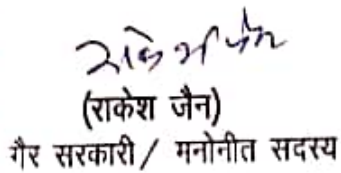 राकेश जैन
(राकेश जैन)
गैर सरकारी / मनोनीत सदस्य